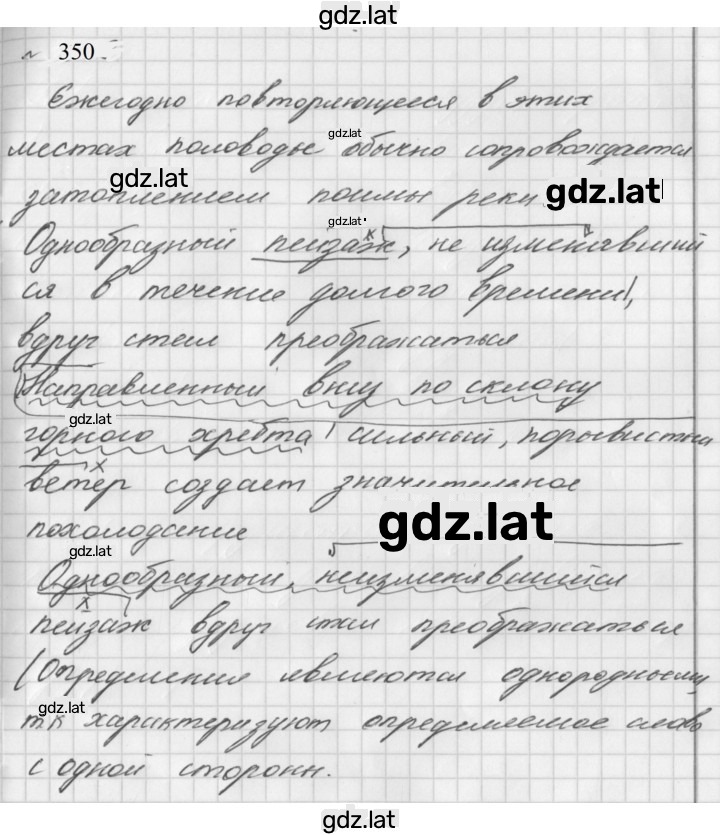 gdz.lat
№ 350
Ежегодно повторяющееся в этих
местах половодье обычно сопровождается
gdz.lat
затоплением поймы реки.
gdz.lat
gdz.lat
gdz.lat
Однообразный пейзаж, не изменявший
ся в течение долгого времени,
вдруг стал преображаться
Направленный вниз по склону
gdz.lat
горного хребта сильный, порывистый
ветер создает значительное
похолодание
gdz.lat
gdz.lat
Однообразный, неизменявшийся
пейзаж вдруг стал преображаться
(Определения являются однородными,
тк характеризуют определяемое слово
с одной сторонн.
gdz.lat